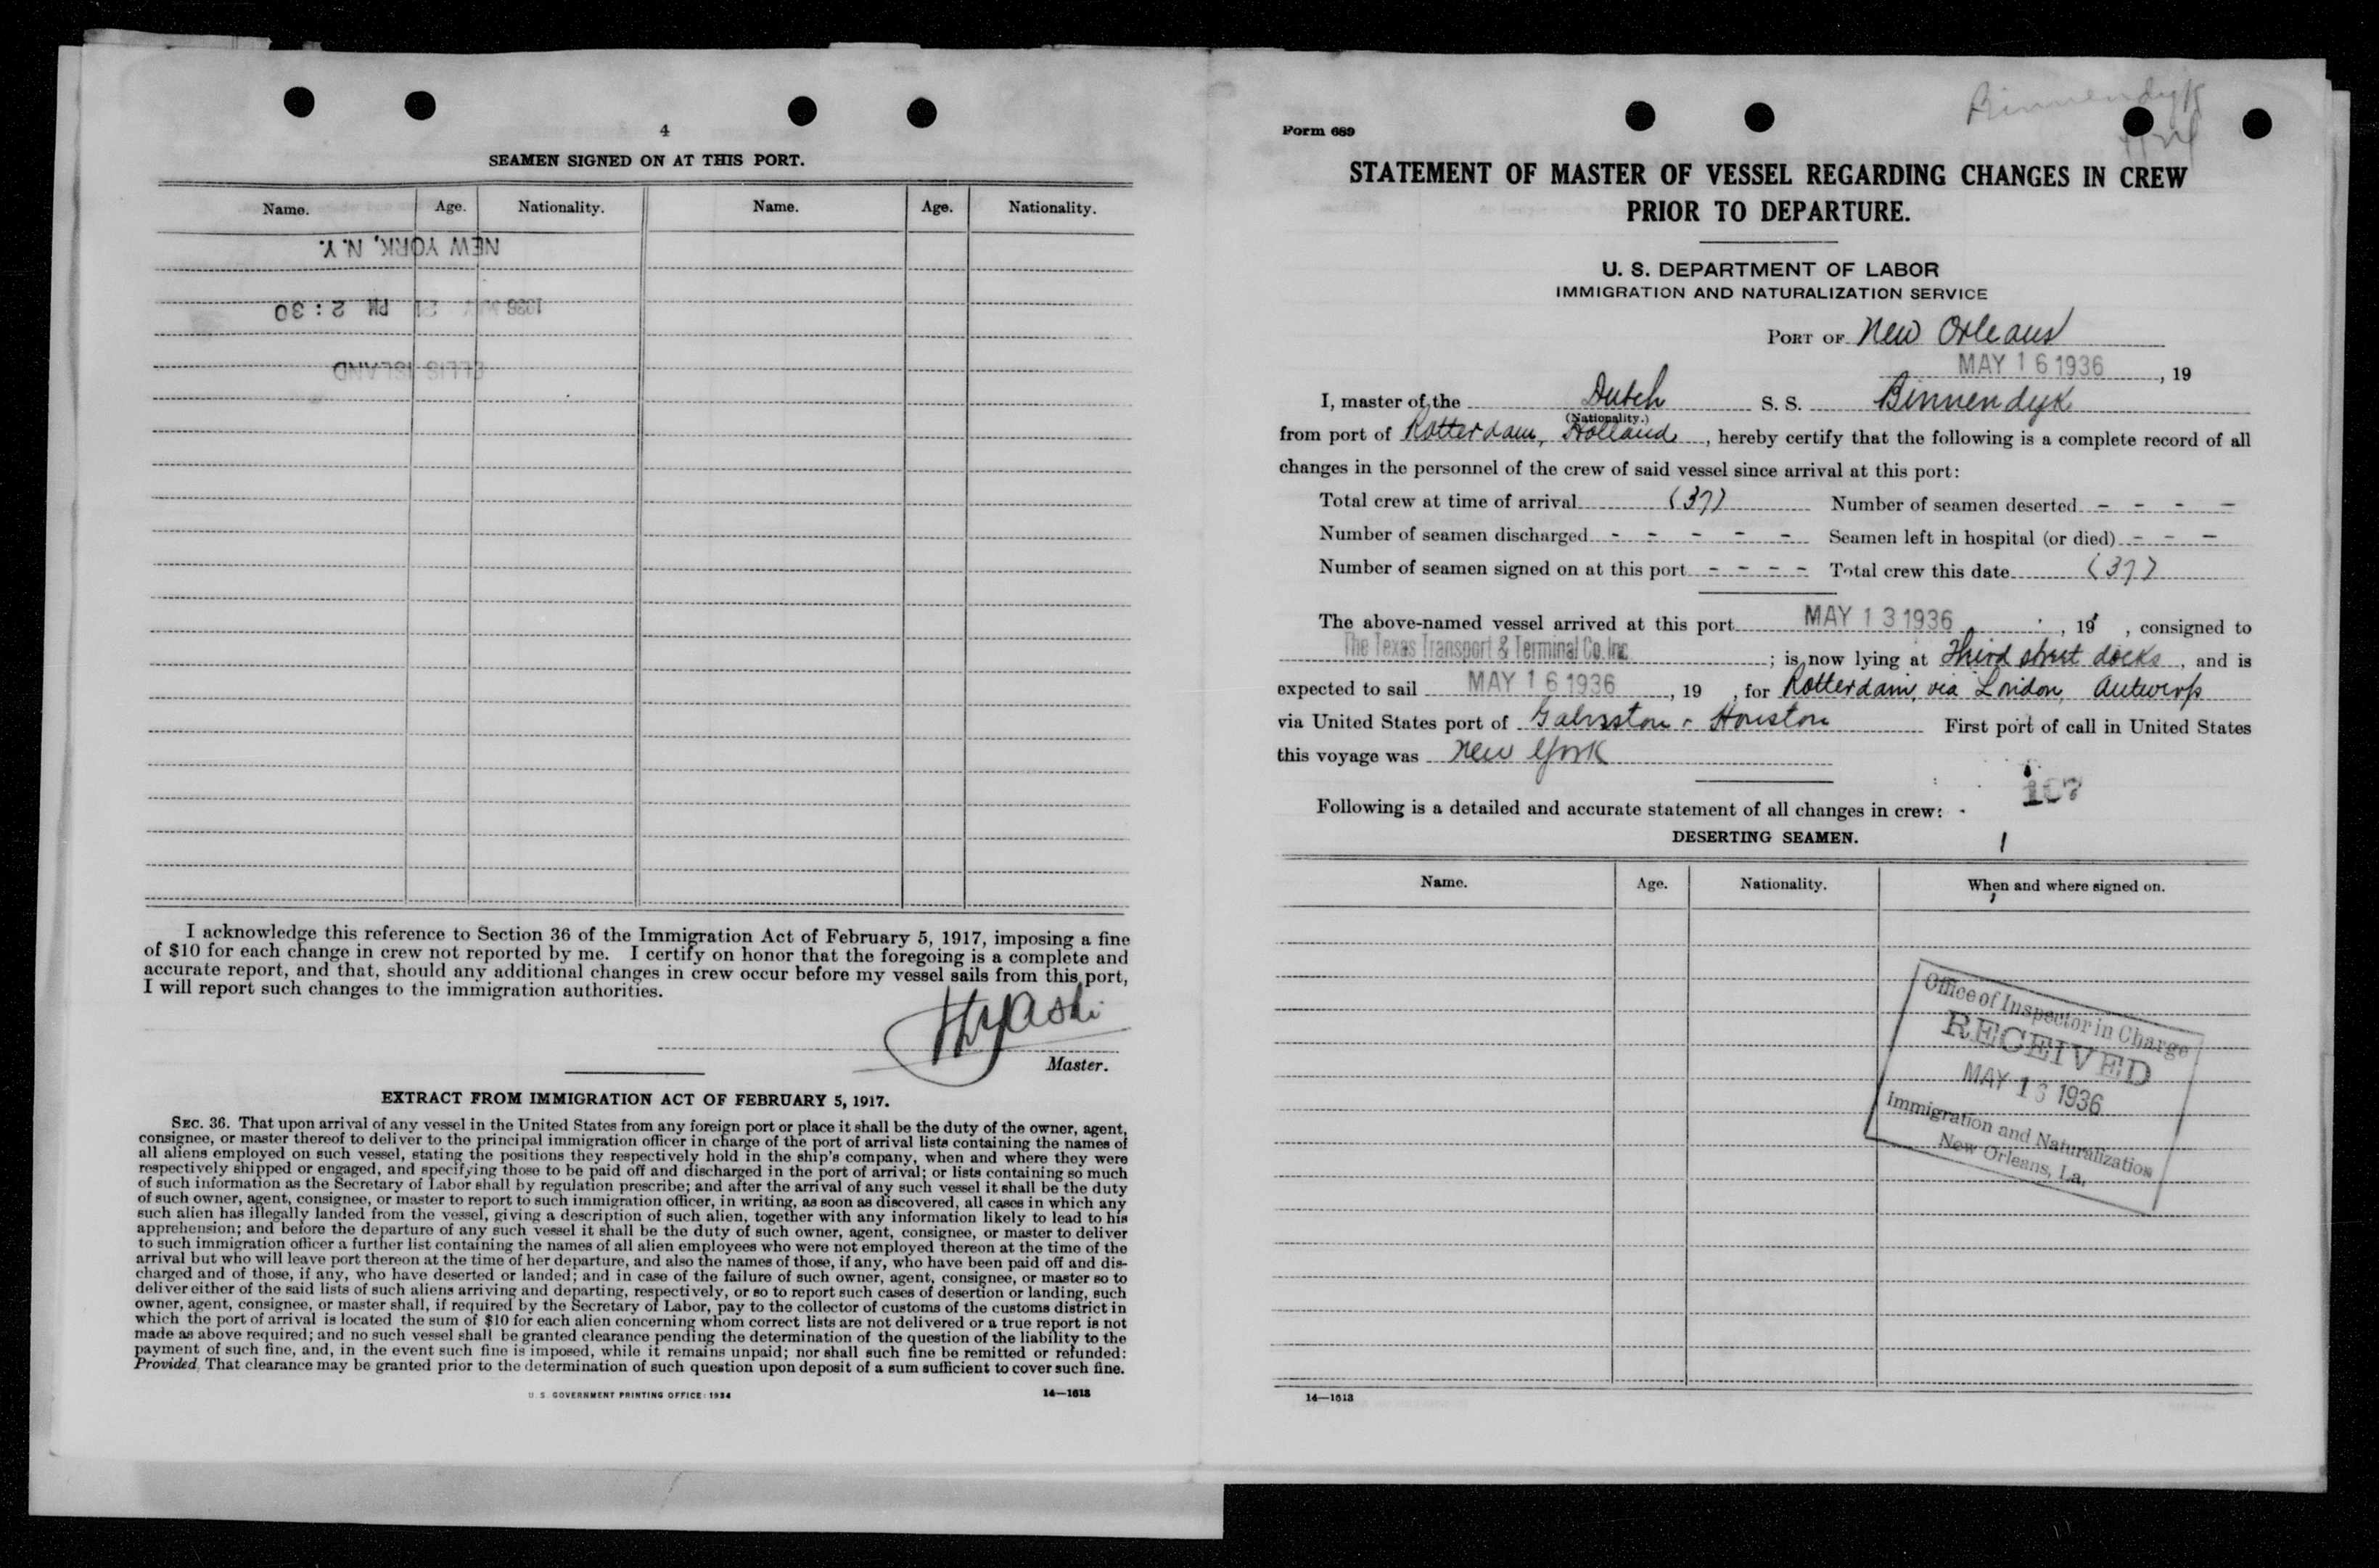 4
SEAMEN SIGNED ON AT THIS PORT.
Name. Age. Nationality. Name. Age. Nationality.
NEW YORK, N.Y.
1936 21 PM 2:30
ELLIS ISLAND
I acknowledge this reference to Section 36 of the Immigration Act of February 5, 1917, imposing a fine
of $10 for each change in crew not reported by me. I certify on honor that the foregoing is a complete and
accurate report, and that, should any additional changes in crew occur before my vessel sails from this port,
I will report such changes to the immigration authorities.
Master.
EXTRACT FROM IMMIGRATION ACT OF FEBRUARY 5, 1917.
SEC. 36. That upon arrival of any vessel in the United States from any foreign port or place it shall be the duty of the owner, agent,
consignee, or master thereof to deliver to the principal immigration officer in charge of the port of arrival lists containing the names of
all aliens employed on such vessel, stating the positions they respectively hold in the ship's company, when and where they were
respectively shipped or engaged, and specifying those to be paid off and discharged in the port of arrival; or lists containing so much
of such information as the Secretary of Labor shall by regulation prescribe; and after the arrival of any such vessel it shall be the duty
of such owner, agent, consignee, or master to report to such immigration officer, in writing, as soon as discovered, all cases in which any
such alien has illegally landed from the vessel, giving a description of such alien, together with any information likely to lead to his
apprehension; and before the departure of any such vessel it shall be the duty of such owner, agent, consignee, or master to deliver
to such immigration officer a further list containing the names of all alien employees who were not employed thereon at the time of the
arrival but who will leave port thereon at the time of her departure, and also the names of those, if any, who have been paid off and dis-
charged and of those, if any, who have deserted or landed; and in case of the failure of such owner, agent, consignee, or master so to
deliver either of the said lists of such aliens arriving and departing, respectively, or so to report such cases of desertion or landing, such
owner, agent, consignee, or master shall, if required by the Secretary of Labor, pay to the collector of customs of the customs district in
which the port of arrival is located the sum of $10 for each alien concerning whom correct lists are not delivered or a true report is not
made as above required; and no such vessel shall be granted clearance pending the determination of the question of the liability to the
payment of such fine, and, in the event such fine is imposed, while it remains unpaid; nor shall such fine be remitted or refunded:
Provided, That clearance may be granted prior to the determination of such question upon deposit of a sum sufficient to cover such fine.
U. S. GOVERNMENT PRINTING OFFICE: 1934 14—1613
Binnendyk
Form 689
STATEMENT OF MASTER OF VESSEL REGARDING CHANGES IN CREW
PRIOR TO DEPARTURE.
U. S. DEPARTMENT OF LABOR
IMMIGRATION AND NATURALIZATION SERVICE
PORT OF New Orleans
MAY 16 1936, 19
I, master of the Dutch S. S. Binnendyk
(Nationality.)
from port of Rotterdam, Holland, hereby certify that the following is a complete record of all
changes in the personnel of the crew of said vessel since arrival at this port:
Total crew at time of arrival (37) Number of seamen deserted - - - -
Number of seamen discharged - - - - - Seamen left in hospital (or died) - - -
Number of seamen signed on at this port - - - - Total crew this date (37)
The above-named vessel arrived at this port MAY 13 1936, 19 , consigned to
The Texas Transport & Terminal Co. Inc; is now lying at Third street docks, and is
expected to sail MAY 16 1936, 19 , for Rotterdam, via London, Antwerp
via United States port of Galveston & Houston First port of call in United States
this voyage was New York
107
Following is a detailed and accurate statement of all changes in crew:
DESERTING SEAMEN.
Name. Age. Nationality. When and where signed on.
Office of Inspector in Charge
RECEIVED
MAY 13 1936
Immigration and Naturalization
New Orleans, La.
14—1613